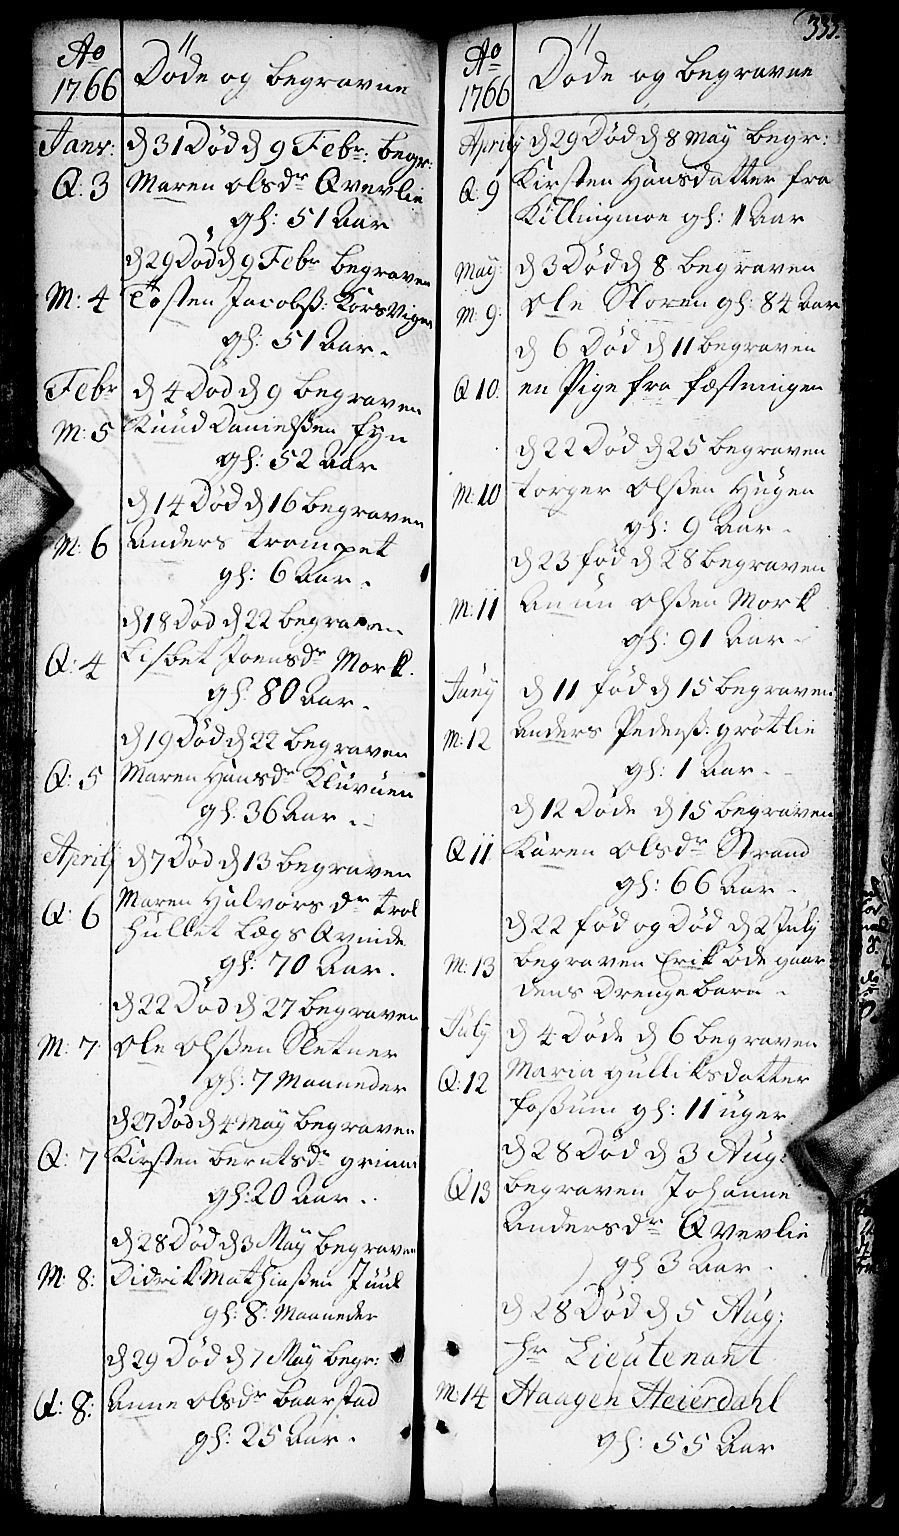 Ao
1766
Døde og begravne
Janr: d 31 Død d 9 Febr: begr:
Q: 3 Maren olsdr Qvevlie
gl: 51 Aar
d 29 Død d 9 Febr begraven
M: 4 Tosten Jacobsß: Korsvigen
gl: 51 Aar.
Febr d 4 Død d 9 begraven
M: 5 Knud Danielßen fyn
gl: 52 Aar
d 14 Død d 16 begraven
M: 6 Anders trompet
gl: 6 Aar.
d 18 Død d 22 begraven
Q: 4 Lisbet Joensdr Mork.
gl: 80 Aar.
d 19 Død d 22 begraven
Q: 5 Maren Hansdr Kluvuen
gl: 36 Aar.
Aprilj d 7 Død d 13 begraven
Q: 6 Maren Halvorsdr trol
hullet Lægs Qvinde
gl: 70 Aar.
d 22 Død d 27 begraven
M: 7 Ole Olßen Sletner
gl: 7 Maaneder
d 27 Død d 4 May begraven
Q: 7 Kirsten berntsdr grimm
gl: 20 Aar.
d 28 Død d 3 May begraven
M: 8: Didrik Mathiaßen Juul
gl: 8: Maaneder
d 29 Død d 7 May begr:
Q: 8: Anne olsdr baarstad
gl: 25 Aar.
335.
Ao
1766
Døde og begravne
Aprilj d 29 Død d 8 may begr:
Q: 9 Kirsten Hansdatter fra
Killingmoe gl: 1 Aar
May: d 3 Død d 8 begraven
M: 9: Ole Storen gl: 84 Aar
d 6 Død d 11 begraven
Q 10. en Pige fra fæstningen
d 22 Død d 25 begraven
M: 10 torger olßen Hugen
gl: 9 Aar.
d 23 fød d 28 begraven
M: 11 Anun olßen Mork
gl: 91 Aar.
Junij d 11 fød d 15 begraven
M: 12 Anders Pederß: grøtlie
gl: 1 Aar.
d 12 Døde d 15 begraven
Q 11 Karen olsdr Strand
gl: 66 Aar.
d 22 fød og Død d 2 Julij
M: 13 begraven Erik øde gaar
dens Drenge barn
July d 4 Døde d 6 begraven
Q: 12 Maria gulliksdatter
foßum gl: 11 uger
d 28 Død d 3 Aug:
Q 13 begraven Johanne
Andersdr Qvevlie
gl 3 Aar.
d 28 Død d 5 Aug:
Hr Lieutenant
M: 14 Haagen Heierdahl
gl: 55 Aar